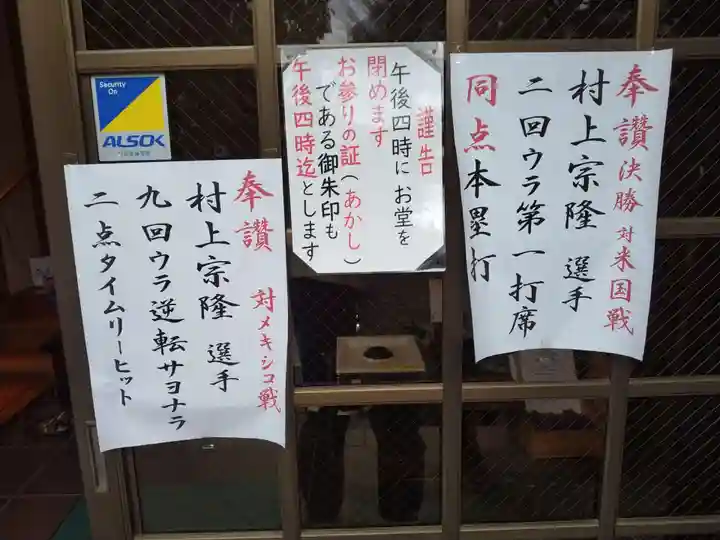 奉讃 決勝 対 米国戦
村上宗隆 選手
二回ウラ第一打席
同点本塁打
謹告
午後四時にお堂を
閉めます
お参りの証(あかし)
である御朱印も
午後四時迄とします
Security
On
ALSOK
奉讃 対メキシコ戦
村上宗隆 選手
九回ウラ逆転サヨナラ
二点タイムリーヒット